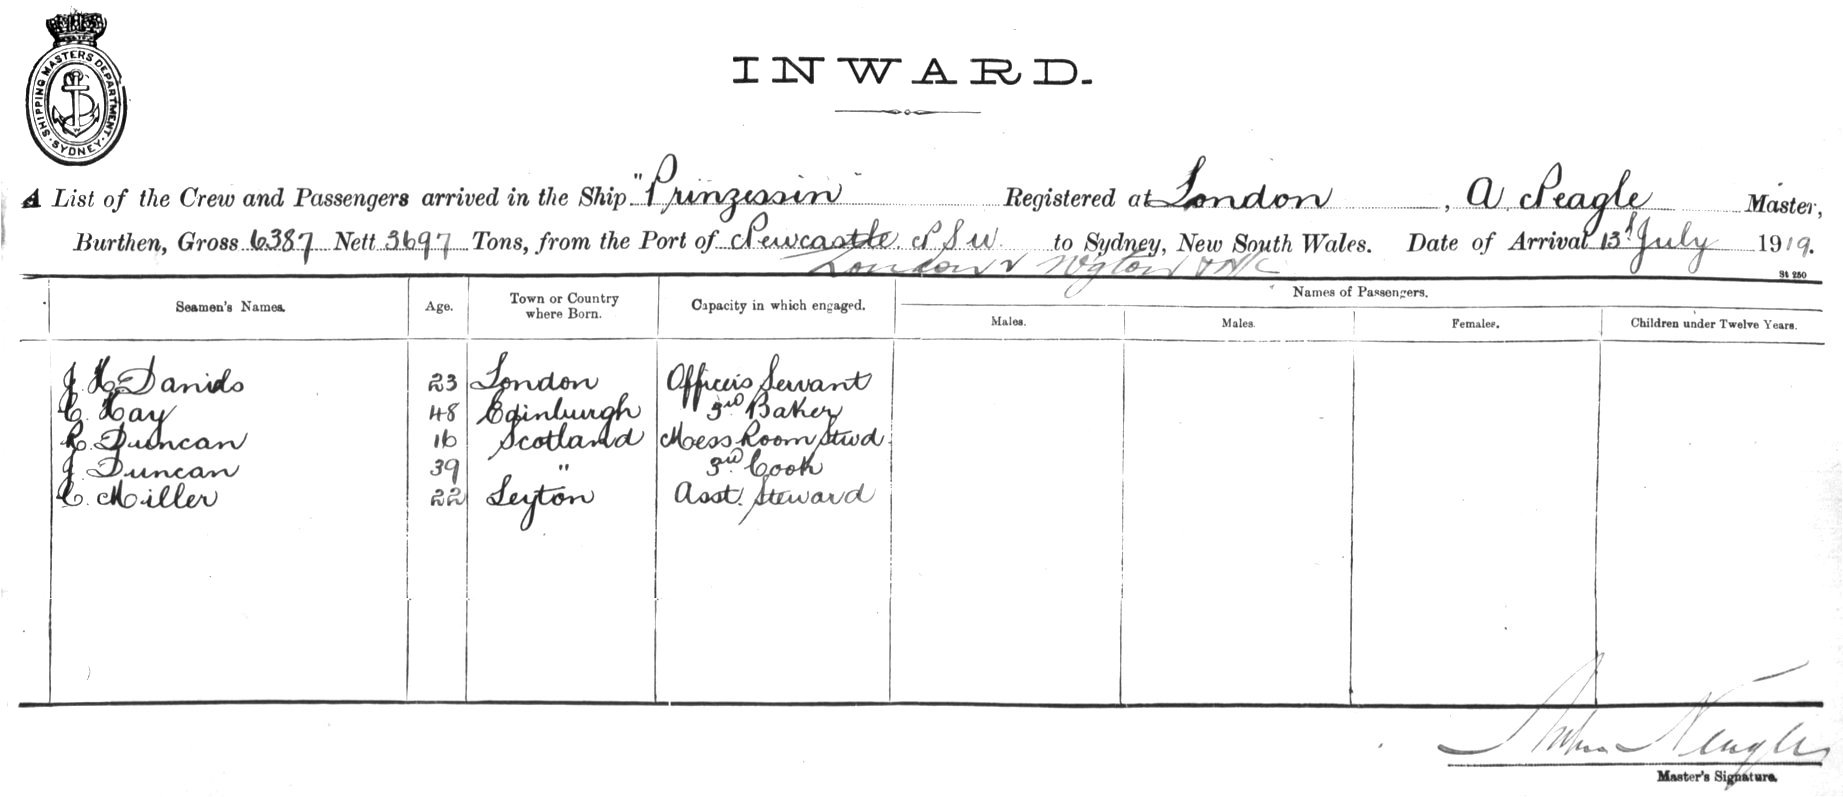 SHIPPING MASTERS DEPARTMENT. SYDNEY.
INWARD.
A List of the Crew and Passengers arrived in the Ship "Prinzessin" Registered at London, A Neagle Master,
Burthen, Gross 6387 Nett 3697 Tons, from the Port of Newcastle N S W. to Sydney, New South Wales. Date of Arrival 13th July 1919.
London & Wgton & N/C
St 250
Seamen's Names. Age. Town or Country where Born. Capacity in which engaged. Names of Passengers.
Males. Males. Females. Children under Twelve Years.
J. H. Daniels 23 London Officers Servant
C. Hay 48 Edinburgh 3rd Baker
R. Duncan 16 Scotland Mess Room Stwd
J. Duncan 39 " 3rd Cook
C. Miller 22 Leyton Asst. Steward
Arthur Neagle
Master's Signature.